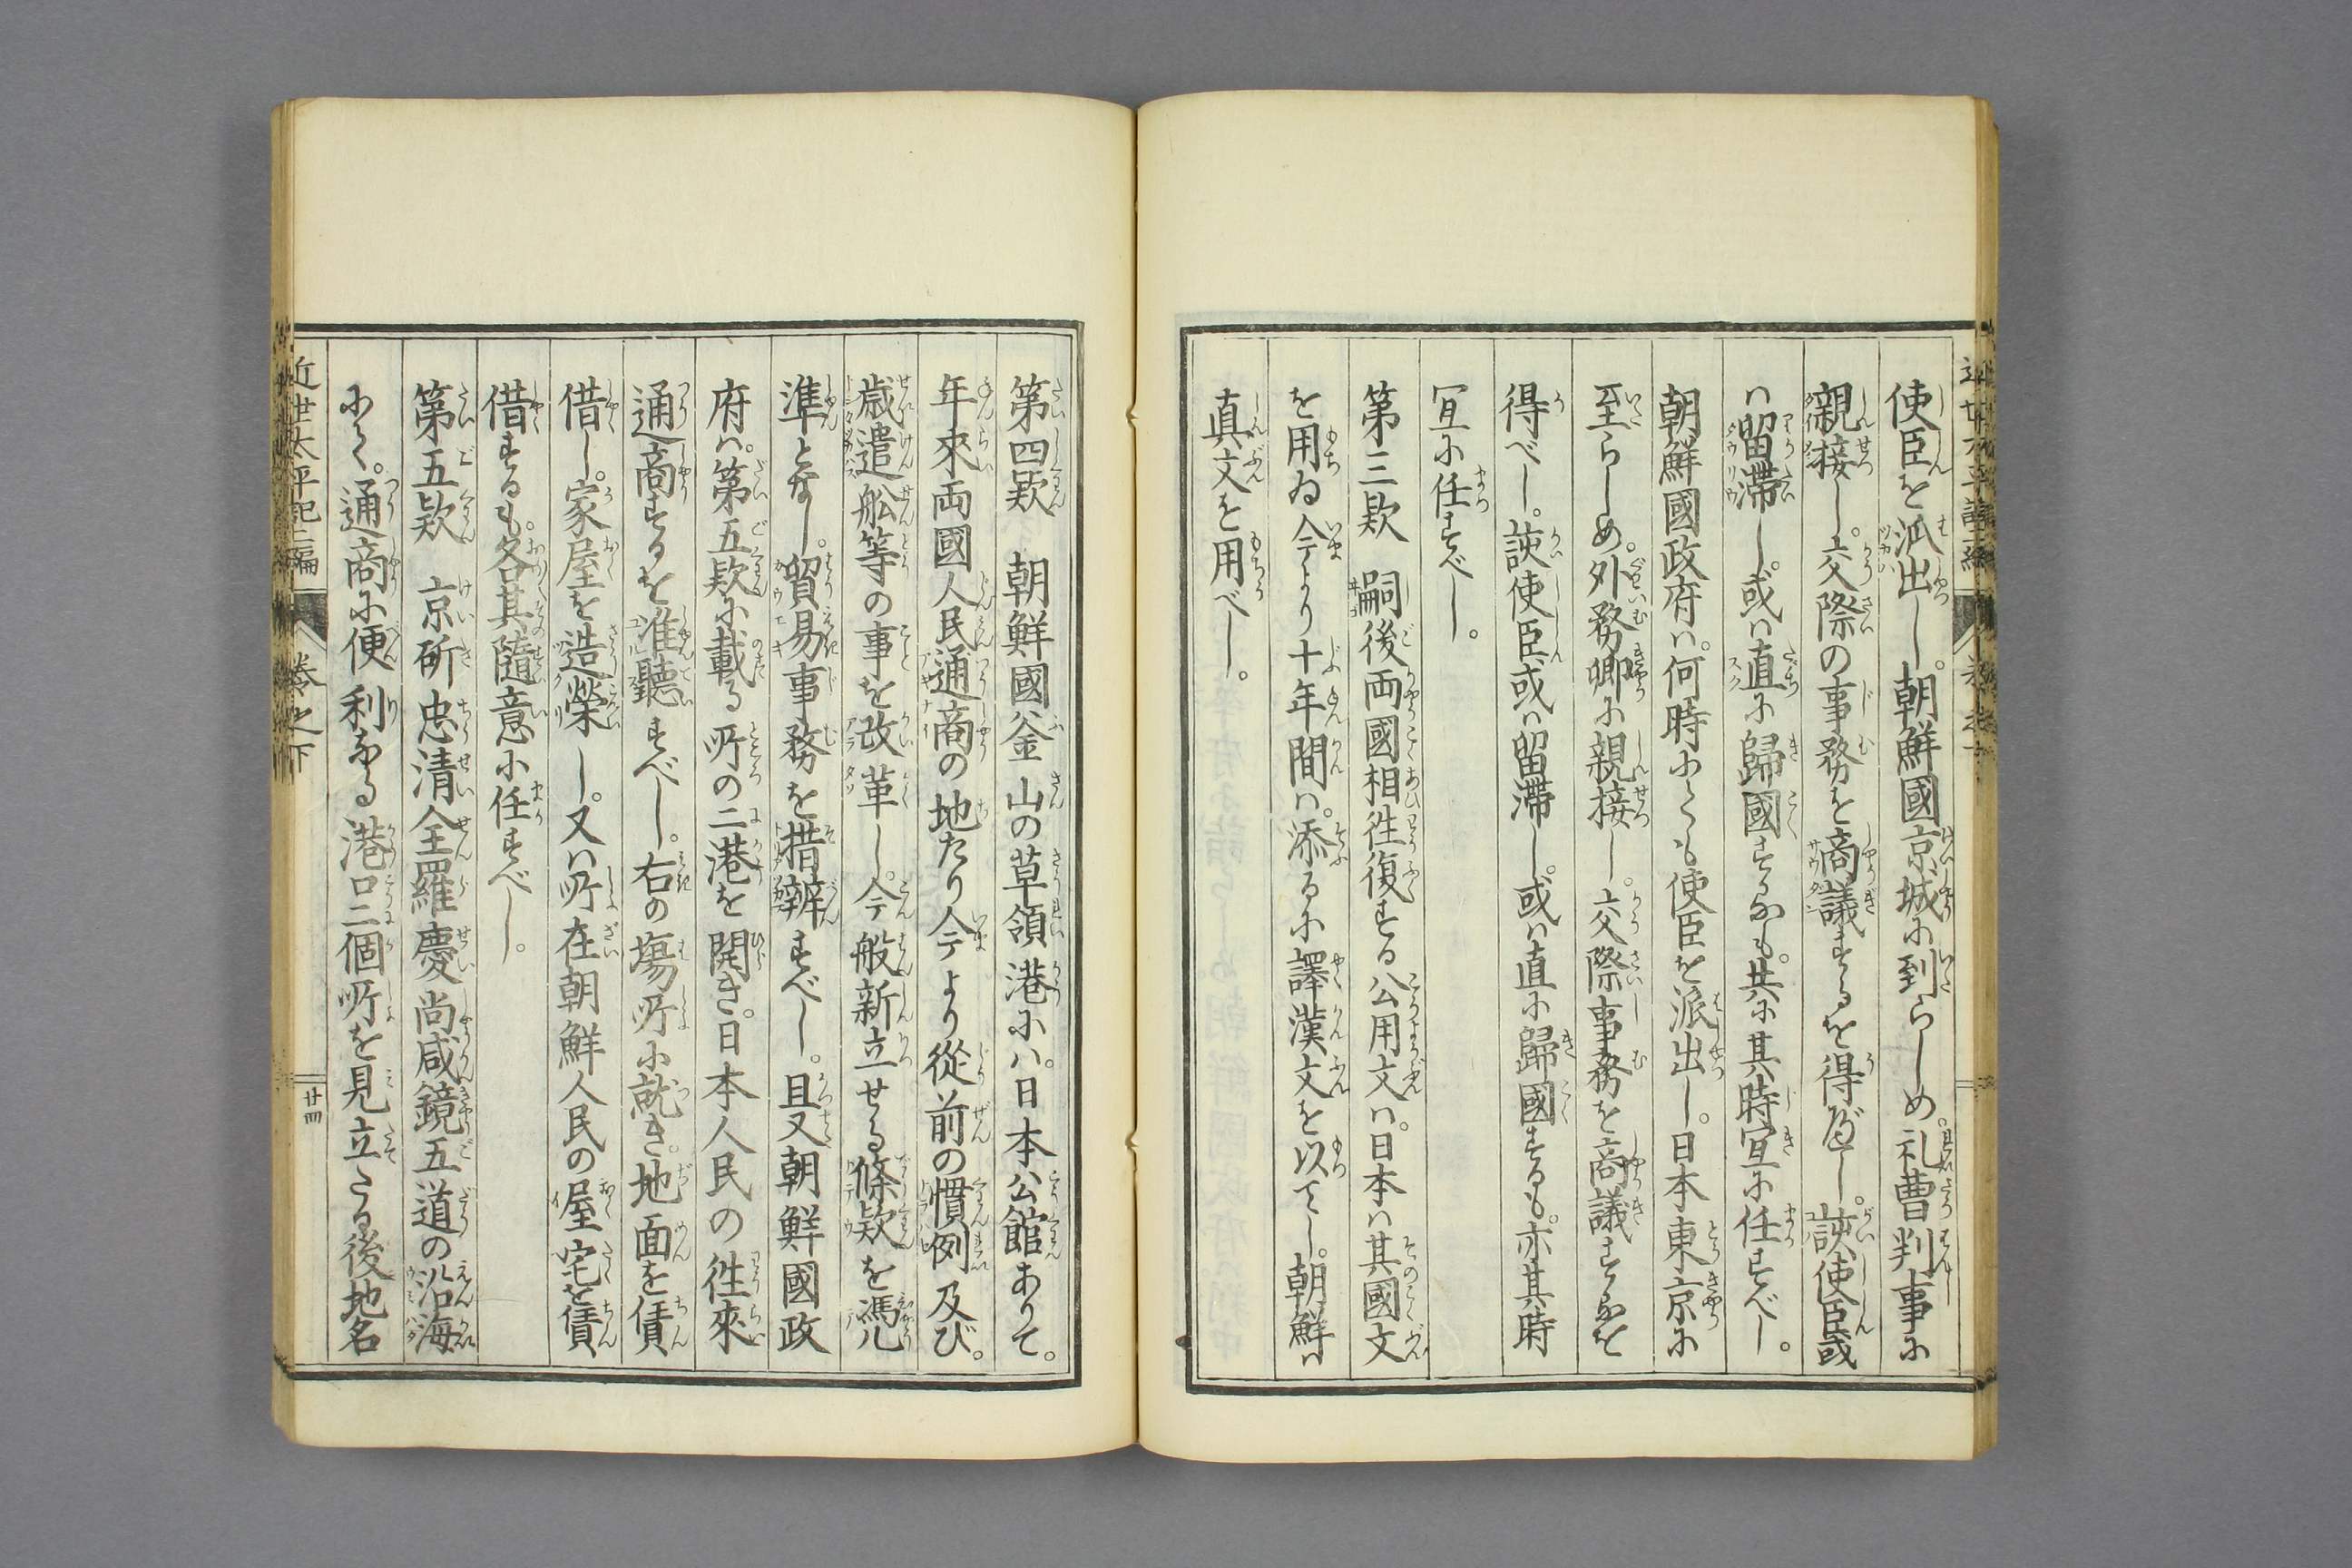 使臣を派出し。朝鮮國京城に到らしめ。礼曹判事に
親接し。交際の事務を商議するを得べし。該使臣或
ハ留滞し。或ハ直に歸國するも。共に其時宜に任すべし。
朝鮮國政府ハ。何時にても使臣を派出し。日本東京に
至らしめ。外務卿に親接し。交際事務を商議するを
得べし。該使臣或ハ留滞し。或ハ直に歸國するも。亦其時
宜に任すべし。
第三款　嗣後両國相徃復する公用文ハ。日本ハ其國文
を用ゐ今より十年間ハ。添るに譯漢文を以てし。朝鮮ハ
真文を用べし。
第四款　朝鮮國釜山の草領港にハ。日本公館ありて。
年來両國人民通商の地たり今より從前の慣例及び。
歳遣舩等の事を改革し。今般新立せる條款を馮凢
準となし。貿易事務を措辦すべし。且又朝鮮國政
府ハ。第五款に載る所の二港を開き。日本人民の徃來
通商するを准聽すべし。右の塲所に就き。地面を賃
借し。家屋を造榮し。又ハ所在朝鮮人民の屋宅を賃
借するも。各其隨意に任すべし。
第五款　京圻忠清全羅慶尚咸鏡五道の沿海
にて。通商に便利なる港口二個所を見立たる後地名
近世太平記二編　巻之下　廿四